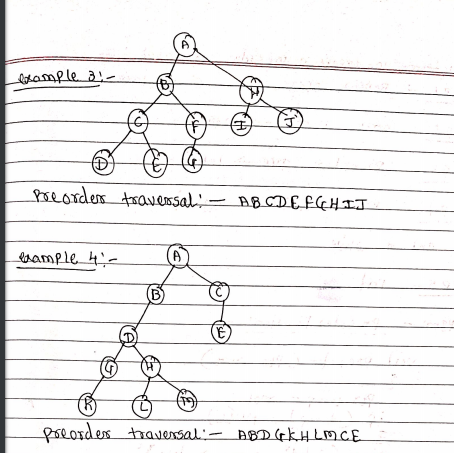 A
example 3:-
B
H
C
F
I
J
D
E
G
Preorder traversal:- ABCDEFGHIJ
example 4:-
A
B
C
D
E
G
H
K
L
M
Preorder traversal:- ABDGKHLMCE